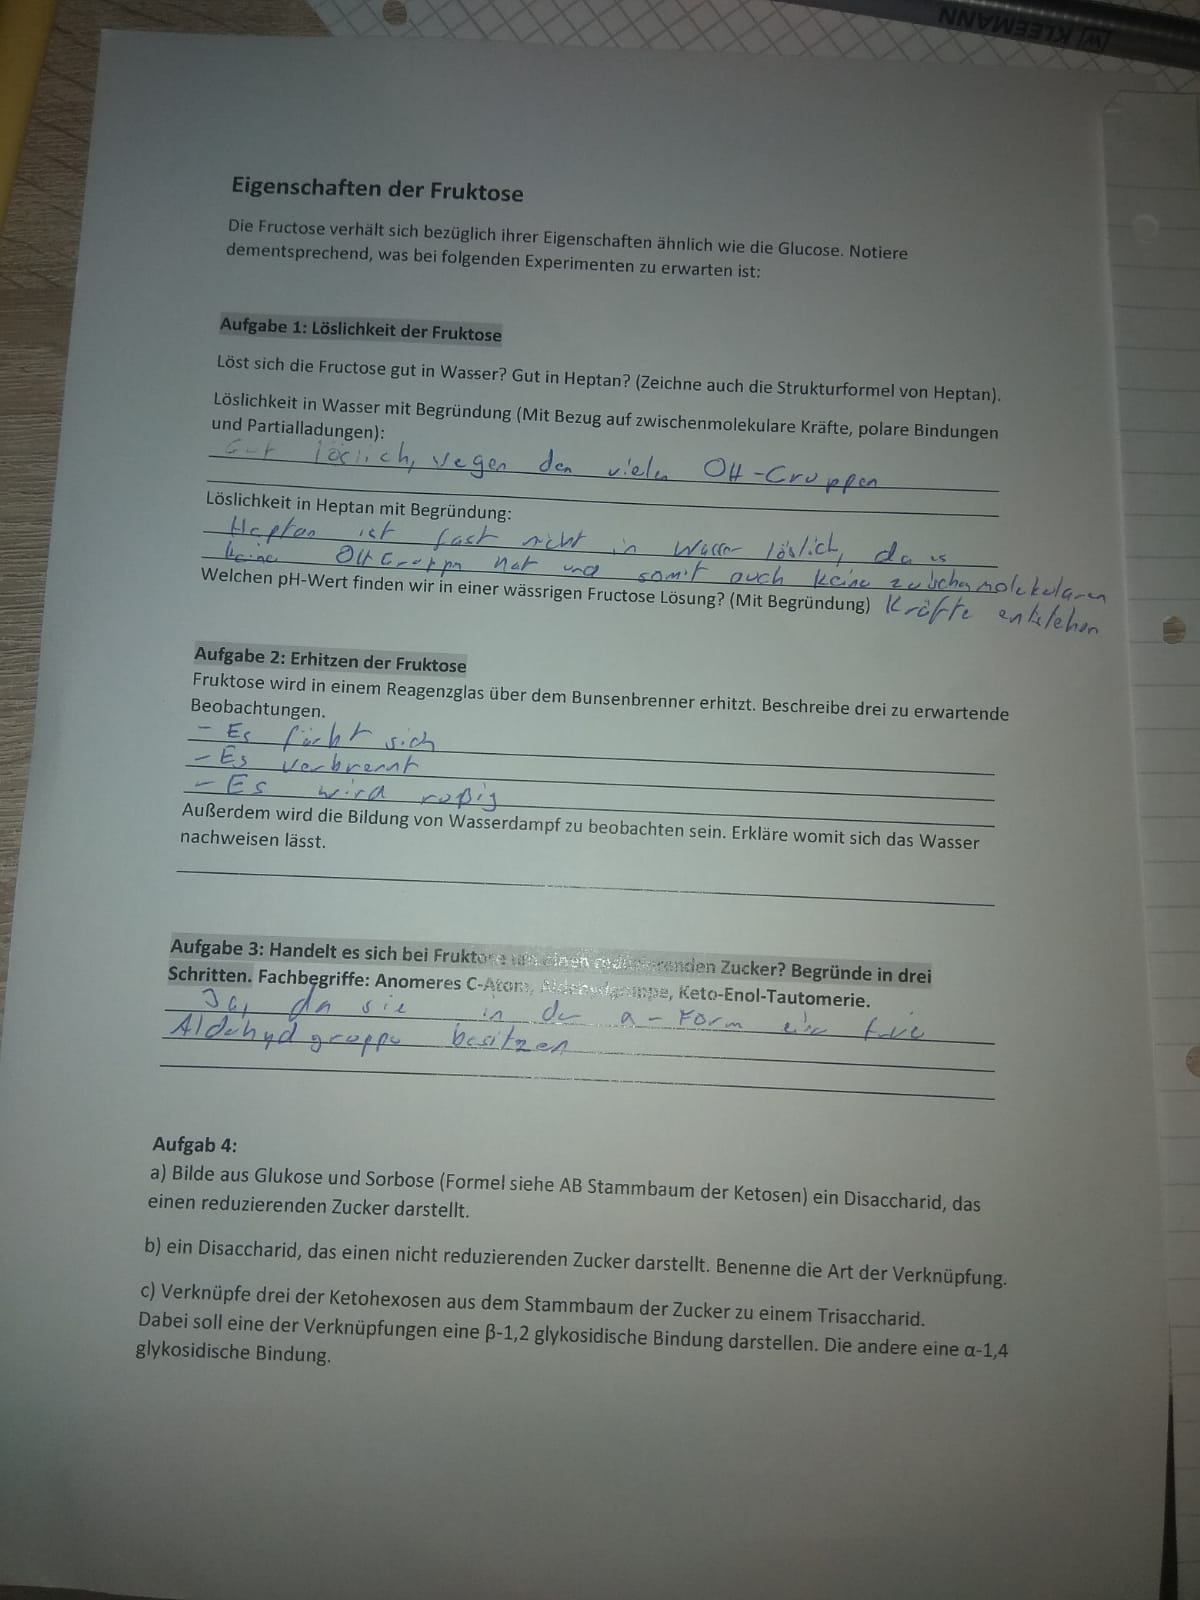 KLEEMANN
Eigenschaften der Fruktose
Die Fructose verhält sich bezüglich ihrer Eigenschaften ähnlich wie die Glucose. Notiere
dementsprechend, was bei folgenden Experimenten zu erwarten ist:
Aufgabe 1: Löslichkeit der Fruktose
Löst sich die Fructose gut in Wasser? Gut in Heptan? (Zeichne auch die Strukturformel von Heptan).
Löslichkeit in Wasser mit Begründung (Mit Bezug auf zwischenmolekulare Kräfte, polare Bindungen
und Partialladungen):
Gut löslich, wegen den vielen OH-Gruppen
Löslichkeit in Heptan mit Begründung:
Heptan ist fast nicht in Wasser löslich, da es
keine OH Gruppen hat und somit auch keine zwischenmolekularen
Kräfte entstehen
Welchen pH-Wert finden wir in einer wässrigen Fructose Lösung? (Mit Begründung)
Aufgabe 2: Erhitzen der Fruktose
Fruktose wird in einem Reagenzglas über dem Bunsenbrenner erhitzt. Beschreibe drei zu erwartende
Beobachtungen.
- Es färbt sich
- Es verbrennt
- Es wird rußig
Außerdem wird die Bildung von Wasserdampf zu beobachten sein. Erkläre womit sich das Wasser
nachweisen lässt.
Aufgabe 3: Handelt es sich bei Fruktose um einen reduzierenden Zucker? Begründe in drei
Schritten. Fachbegriffe: Anomeres C-Atom, Aldehydgruppe, Keto-Enol-Tautomerie.
Ja, da sie in der a-Form eine freie
Aldehydgruppe besitzen
Aufgab 4:
a) Bilde aus Glukose und Sorbose (Formel siehe AB Stammbaum der Ketosen) ein Disaccharid, das
einen reduzierenden Zucker darstellt.
b) ein Disaccharid, das einen nicht reduzierenden Zucker darstellt. Benenne die Art der Verknüpfung.
c) Verknüpfe drei der Ketohexosen aus dem Stammbaum der Zucker zu einem Trisaccharid.
Dabei soll eine der Verknüpfungen eine β-1,2 glykosidische Bindung darstellen. Die andere eine α-1,4
glykosidische Bindung.